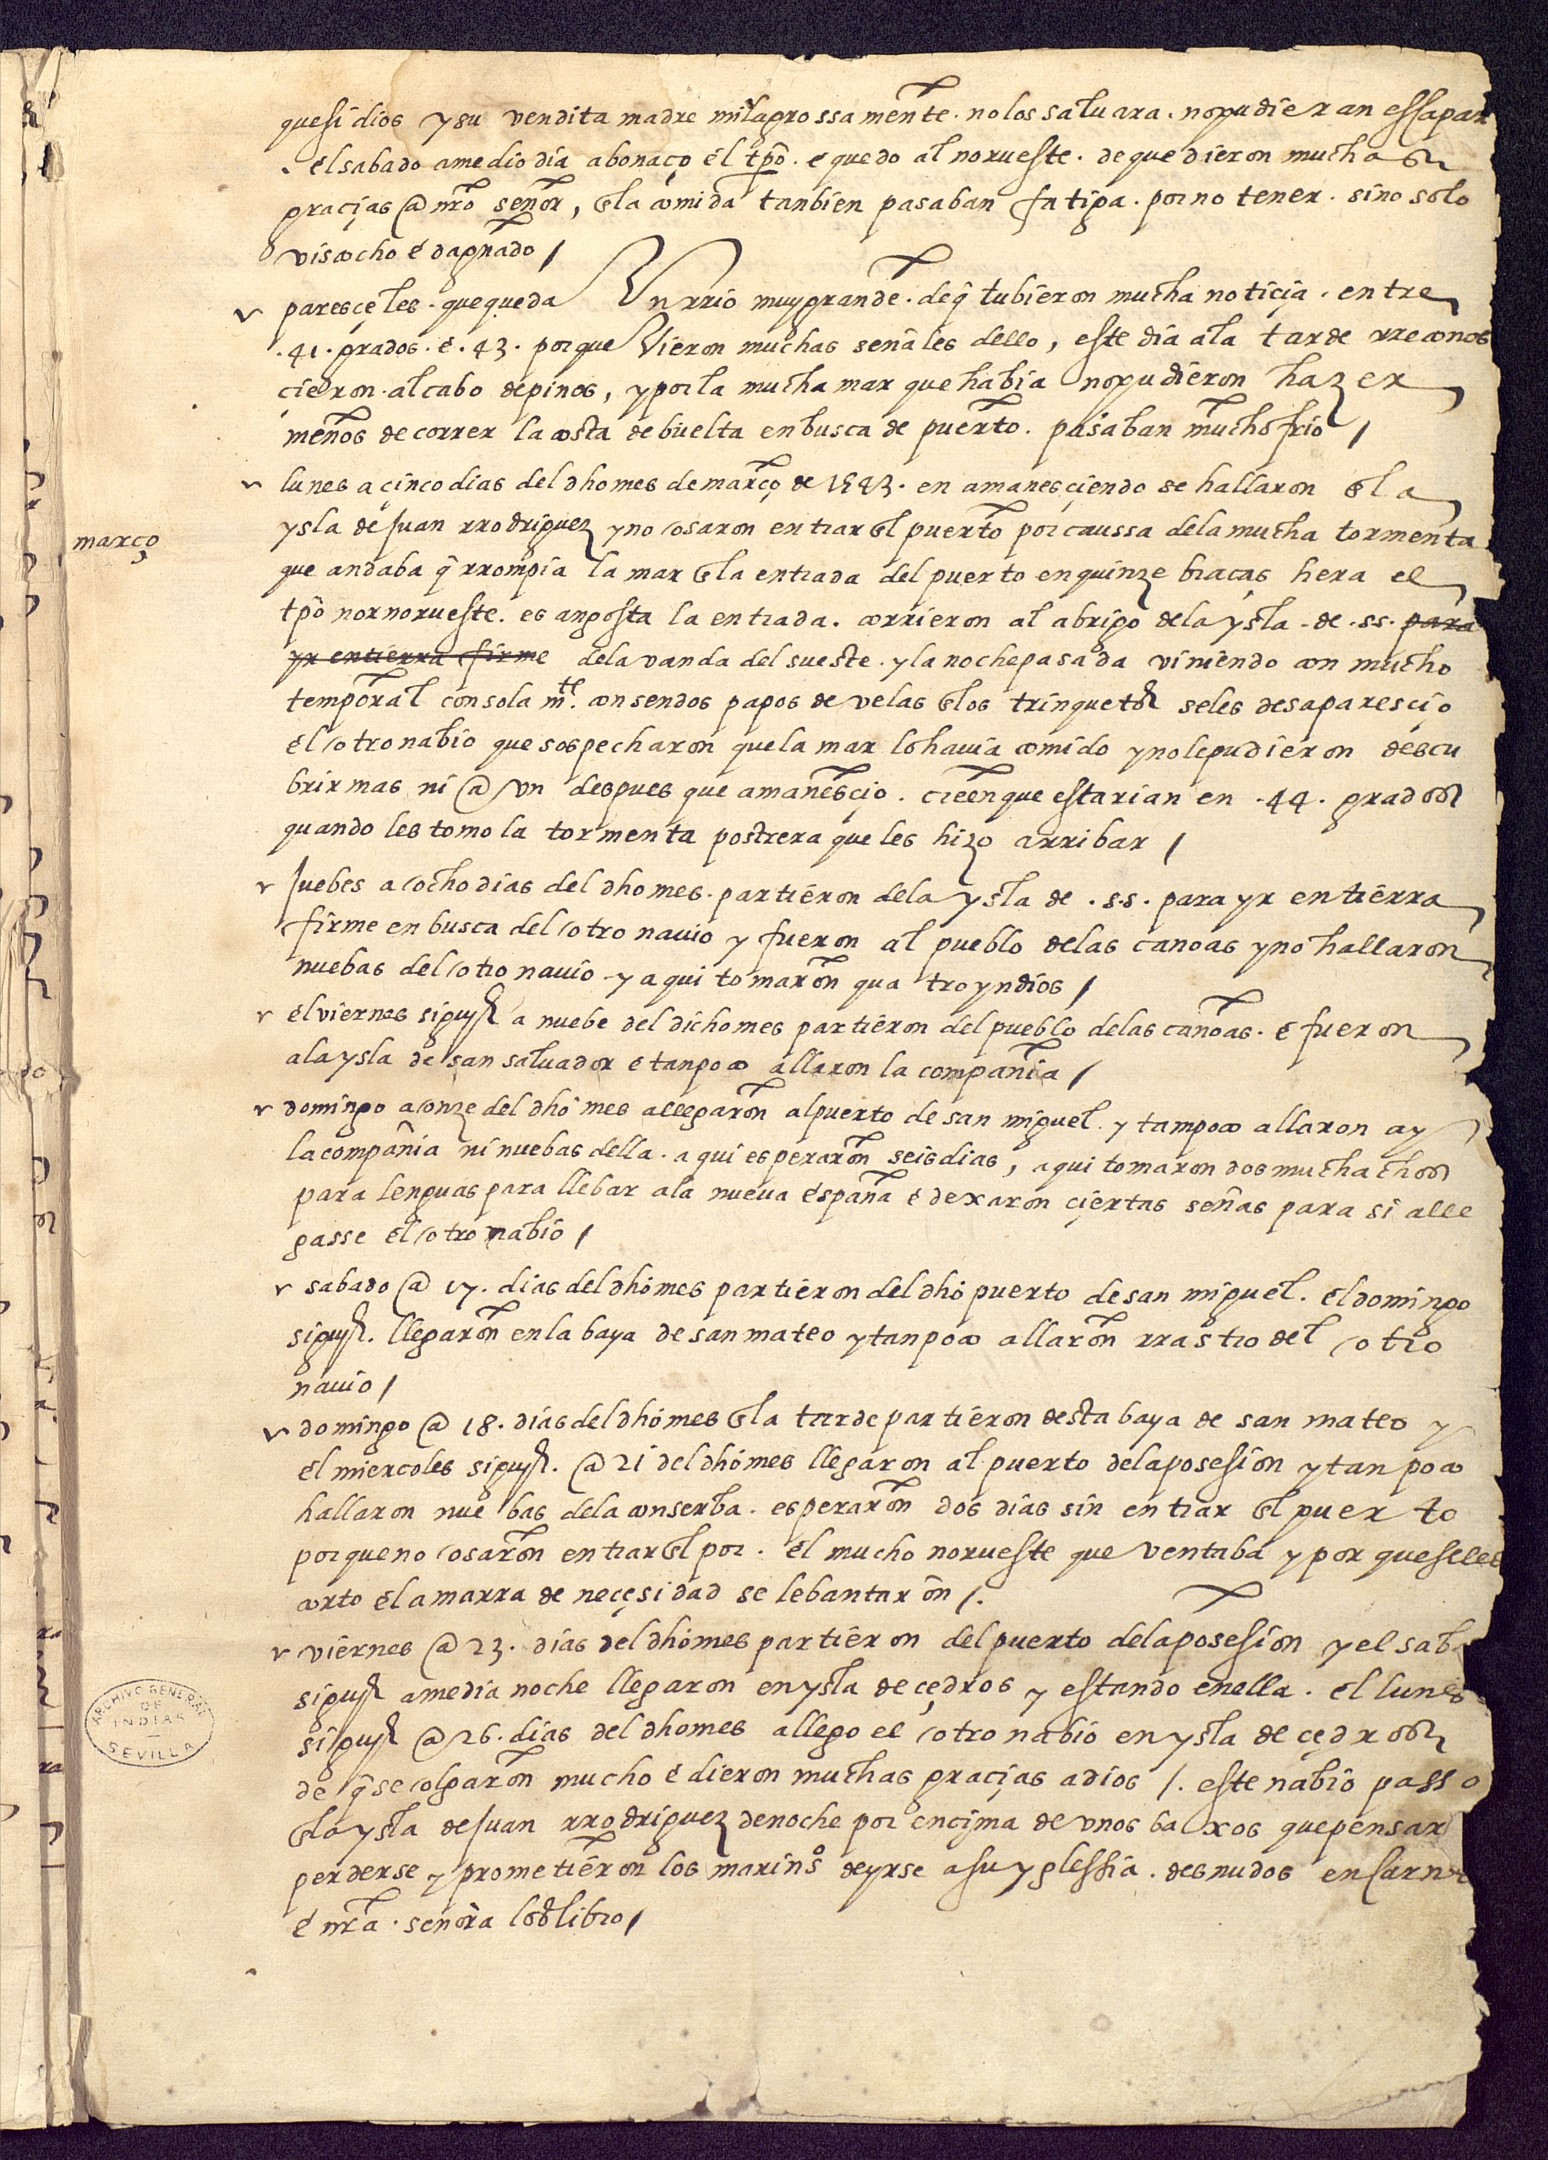 que si dios y su vendita madre milagrossamente. no los saluara. no pudieran escapar
. el sabado a medio dia abonaço el tpõ. e quedo al norueste. de que dieron muchas
gracias @ nrõ señor, en la comida tanbien pasaban fatiga. por no tener. sino solo
viscocho e dagnado /
v paresçeles. que queda Un rrio muy grande. de q̃ tubieron mucha notiçia. entre
.41. grados. e .43. porque Vieron muchas señales dello, este dia a la tarde rreconos
cieron. al cabo de pinos, y por la mucha mar que habia no pudieron hazer
menos de correr la costa de buelta en busca de puerto. pasaban mucho frio /
v lunes a çinco dias del dho mes de março de 1543. en amanesçiendo se hallaron en la
ysla de Juan rrodriguez y no osaron entrar en el puerto por caussa de la mucha tormenta
março
que andaba q̃ rrompia la mar en la entrada del puerto en quinze braças hera el
tpõ nornorueste. es angosta la entrada. corrieron al abrigo de la ysla de .ss. para
yr en tierra firme de la vanda del sueste. y la noche pasada viniendo con mucho
temporal con sola mte. con sendos papos de velas en los trinquetes se les desaparesçio
el otro nabio que sospecharon que la mar lo hauia comido y no le pudieron descu
brir mas ni @ vn despues que amanesçio. creen que estarian en .44. grados
quando les tomo la tormenta postrera que les hizo arribar /
v Juebes a ocho dias del dho mes. partieron de la ysla de .s.s. para yr en tierra
firme en busca del otro nauio y fueron al pueblo de las canoas y no hallaron
nuebas del otro nauio y aqui tomaron quatro yndios /
v el viernes siguye a nuebe del dicho mes partieron del pueblo de las canoas. e fueron
a la ysla de san saluador e tanpoco allaron la compañia /
v domingo a onze del dho mes allegaron al puerto de san miguel. y tampoco allaron ay
la compañia ni nuebas della. aqui esperaron seis dias, aqui tomaron dos muchachos
para lenguas para llebar a la nueva españa e dexaron çiertas señas para si alle
gasse el otro nabio /
v sabado @ 17. dias del dho mes partieron del dho puerto de san miguel. el domingo
siguye. llegaron en la baya de san mateo y tanpoco allaron rrastro del otro
nauio /
v domingo @ 18. dias del dho mes en la tarde partieron desta baya de san mateo y
el miercoles siguye. @ 21 del dho mes llegaron al puerto de la posesion y tanpoco
hallaron nuebas de la conserba. esperaron dos dias sin entrar en el puerto
porque no osaron entrar en el por. el mucho norueste que ventaba y por que se les
corto el amarra de neçesidad se lebantaron /.
v viernes @ 23. dias del dho mes partieron del puerto de la posesion y el sab
siguye a media noche llegaron en ysla de çedros y estando en ella. el lunes
siguye @ 26. dias del dho mes allego el otro nabio en ysla de çedros
de q̃ se olgaron mucho e dieron muchas graçias a dios /. este nabio passo
en la ysla de Juan rrodriguez de noche por ençima de vnos baxos que pensar
perderse y prometieron los marinos de yrse a su yglessia. desnudos en carn
e nrã. señora los libro /
ARCHIVO GENERAL
DE
INDIAS
SEVILLA